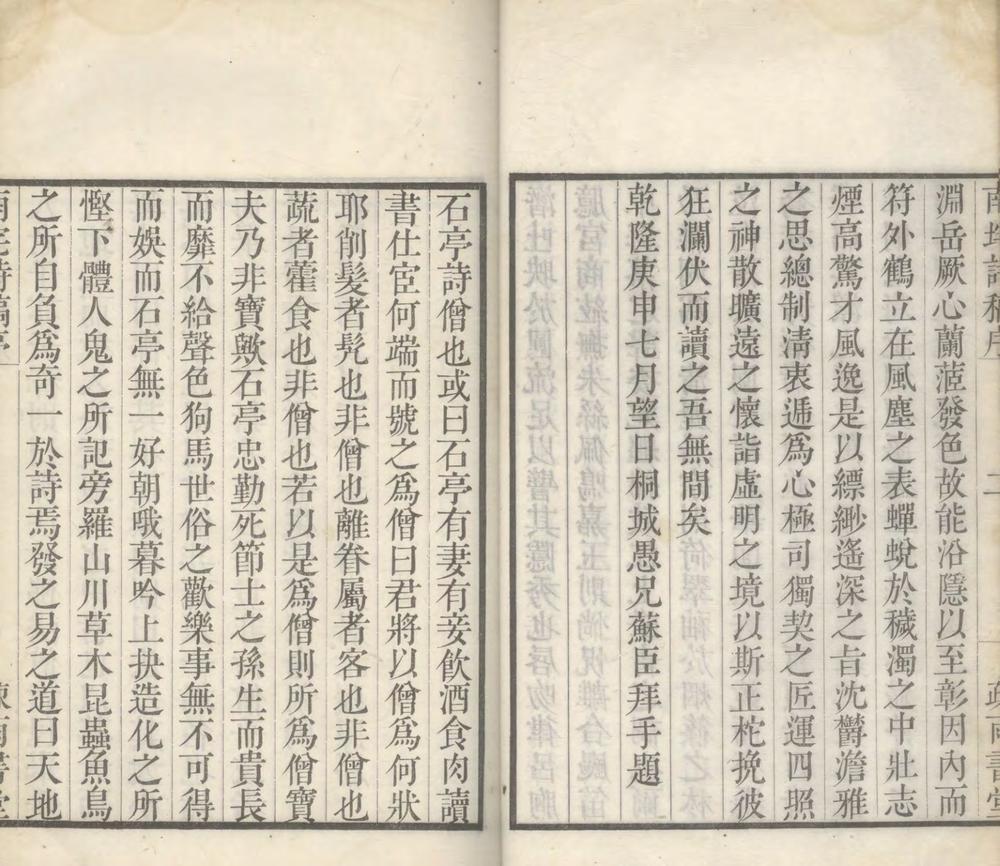 淵岳厥心蘭茝發色故能沿隱以至彰因內而
符外鶴立在風塵之表蟬蛻於穢濁之中壯志
煙高驚才風逸是以縹緲遙深之旨沈鬱澹雅
之思總制清衷遞爲心極司獨契之匠運四照
之神散曠遠之懷詣虛明之境以斯正柁挽彼
狂瀾伏而讀之吾無間矣
乾隆庚申七月望日桐城愚兄蘇臣拜手題
石亭詩僧也或曰石亭有妻有妾飲酒食肉讀
書仕宦何端而號之爲僧曰君將以僧爲何狀
耶削髮者髡也非僧也離眷屬者客也非僧也
蔬者藿食也非僧也若以是爲僧則所爲僧寶
夫乃非寶歟石亭忠勤死節士之孫生而貴長
而靡不給聲色狗馬世俗之歡樂事無不可得
而娛而石亭無一好朝哦暮吟上抉造化之所
慳下體人鬼之所記旁羅山川草木昆蟲魚鳥
之所自負爲奇一於詩焉發之易之道曰天地